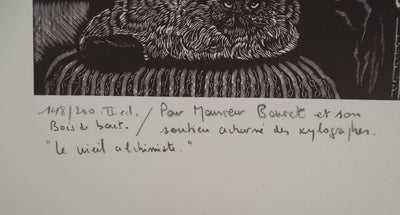 148/200. II ed. / Pour Monsieur et son
Bois de bout. / soutien acharné des xylographes.
"Le vieil alchimiste."